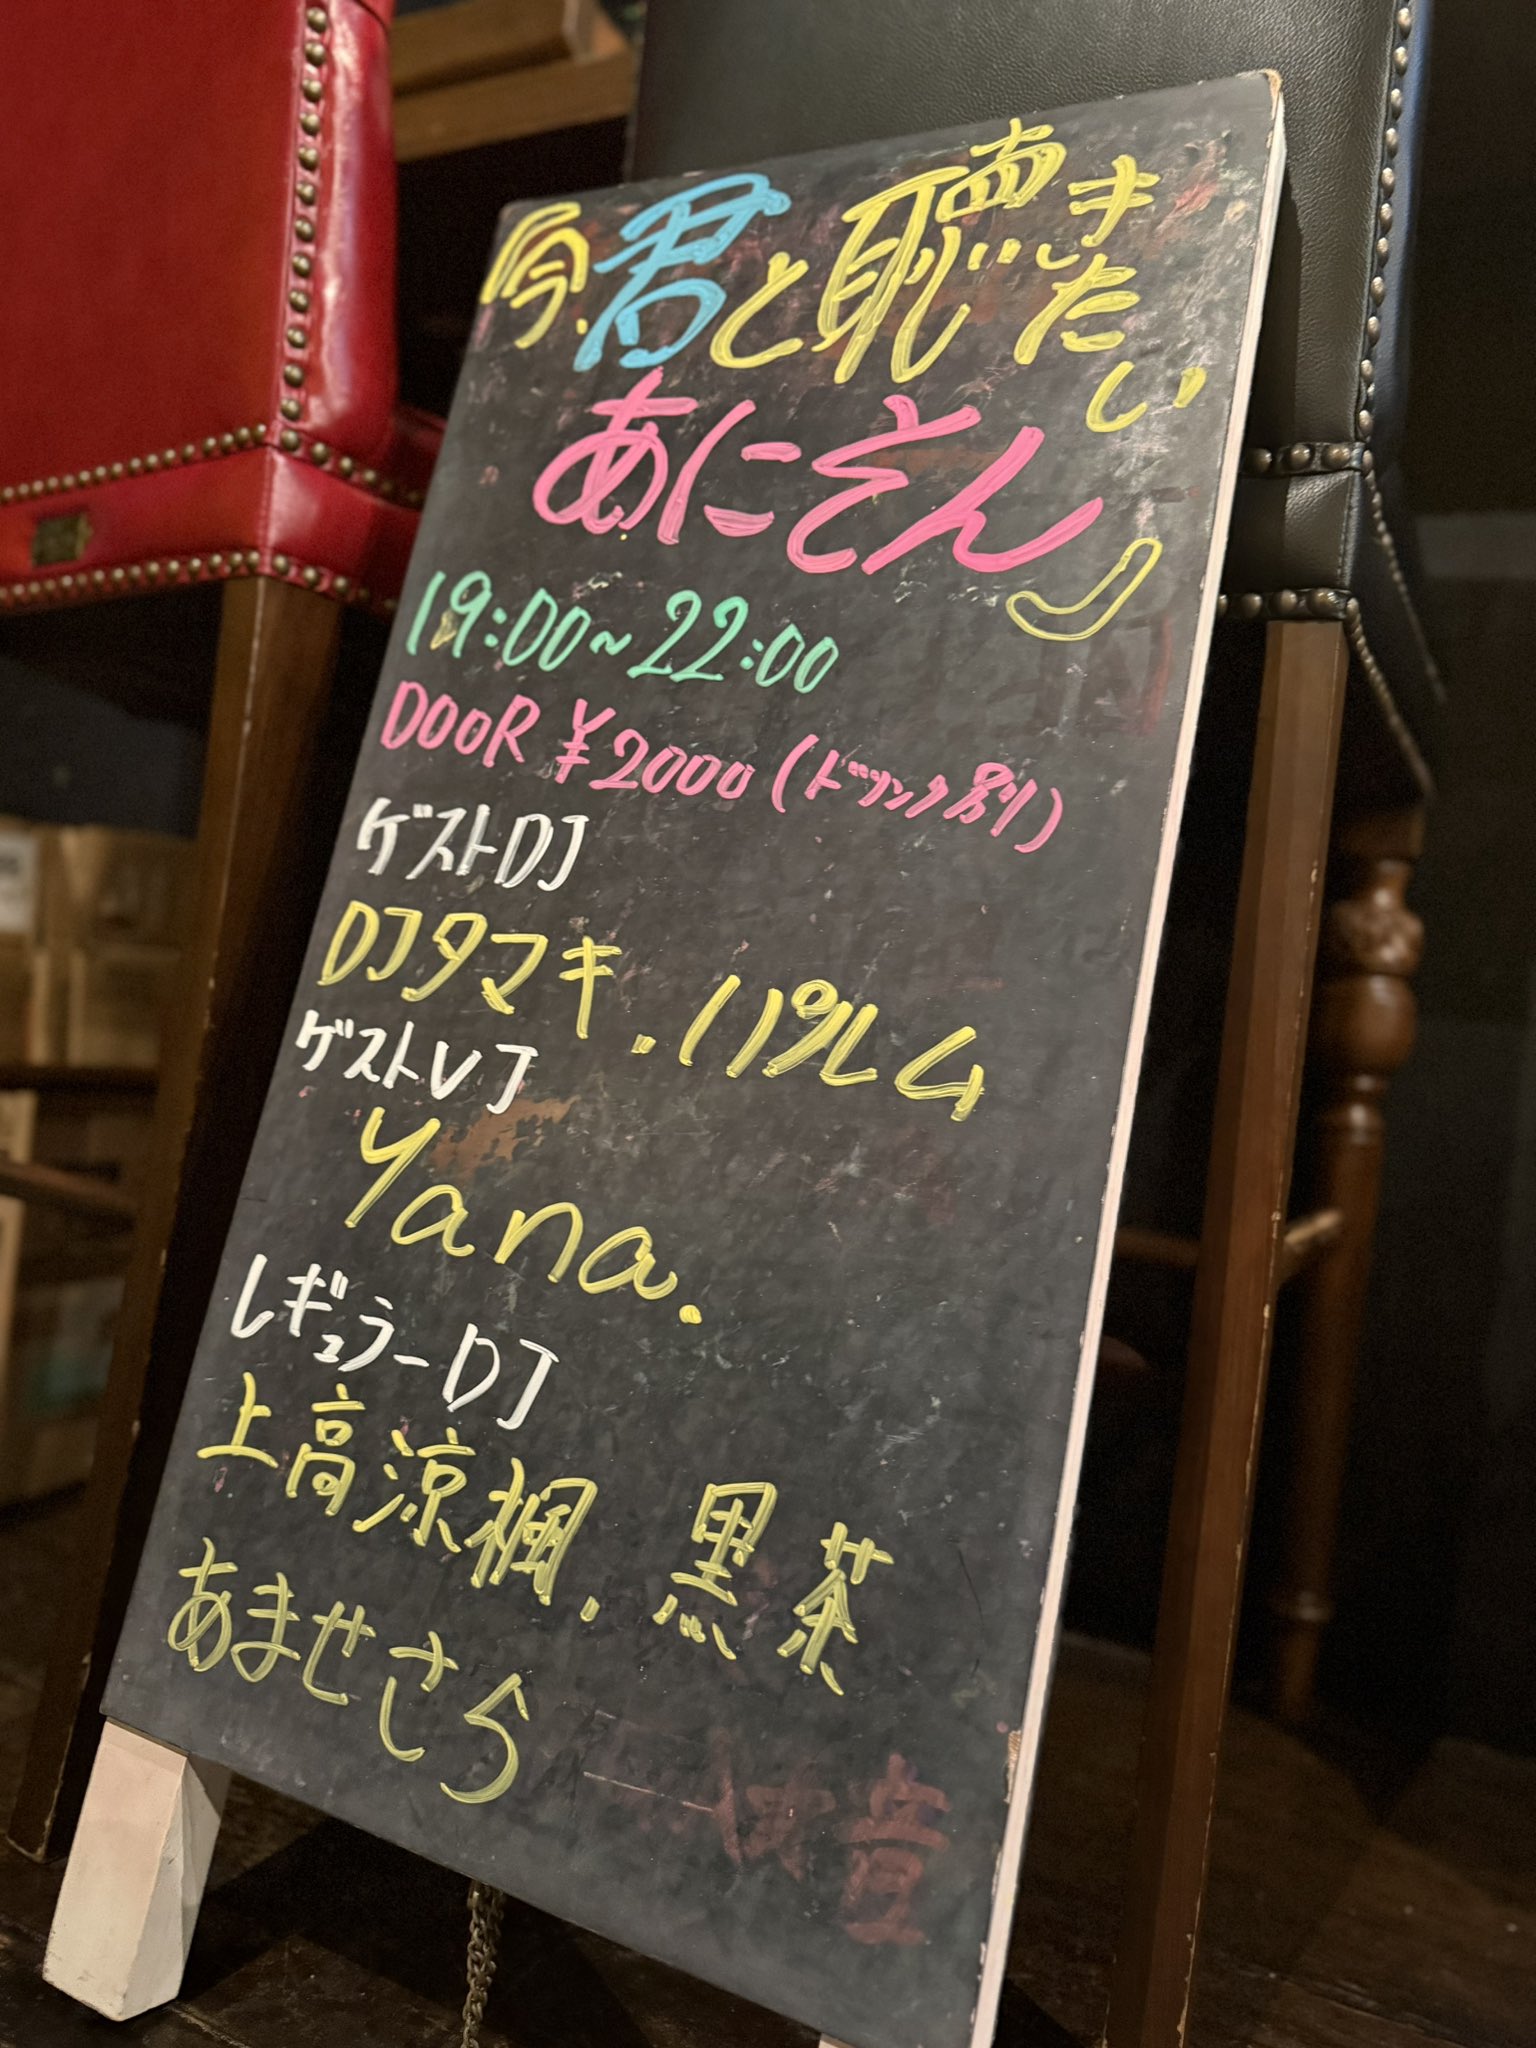 今、君と聴きたい
あにそん
19:00~22:00
DOOR ¥2000(ドリンク別)
ゲストDJ
DJタマキ.パルム
ゲストVJ
Yana.
レギュラーDJ
上高涼楓, 黒茶
あませさら